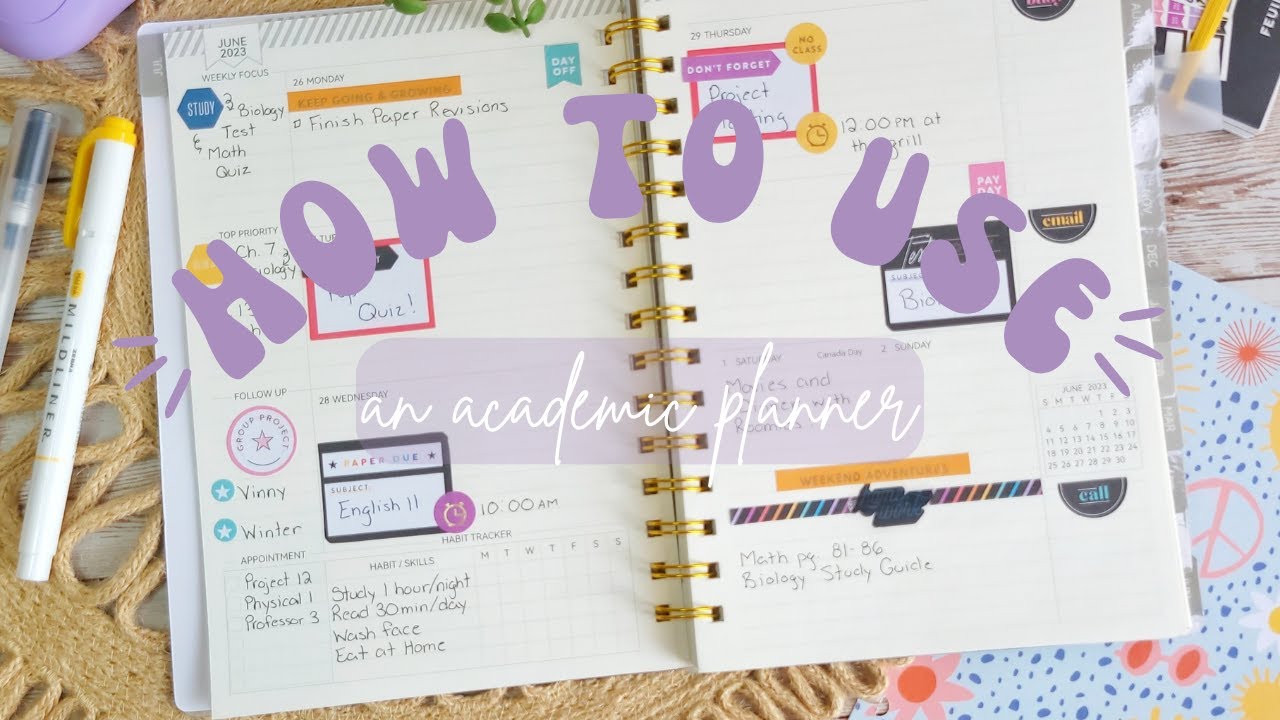 HOW TO USE
an academic planner
JUL
JUNE
2023
WEEKLY FOCUS
STUDY
Biology
Test
&
Math
Quiz
TOP PRIORITY
Ch. 7
Biology
FOLLOW UP
GROUP PROJECT
Vinny
Winter
APPOINTMENT
Project 12
Physical 1
Professor 3
26 MONDAY
DAY
OFF
KEEP GOING & GROWING
Finish Paper Revisions
Quiz!
28 WEDNESDAY
PAPER DUE
SUBJECT:
English 11
10:00 AM
HABIT TRACKER
HABIT / SKILLS
M T W T F S S
Study 1 hour/night
Read 30 min/day
Wash face
Eat at Home
29 THURSDAY
NO
CLASS
DON'T FORGET
Project
12:00 PM at
the grill
PAY
DAY
email
1 SATURDAY
Canada Day
2 SUNDAY
Movies and
with
WEEKEND ADVENTURES
Math pg. 81-86
Biology Study Guide
JUNE 2023
S M T W T F S
1 2 3
4 5 6 7 8 9 10
11 12 13 14 15 16 17
18 19 20 21 22 23 24
25 26 27 28 29 30
call
AUG
NOV
DEC
MAR
MILDLINER
ZEBRA